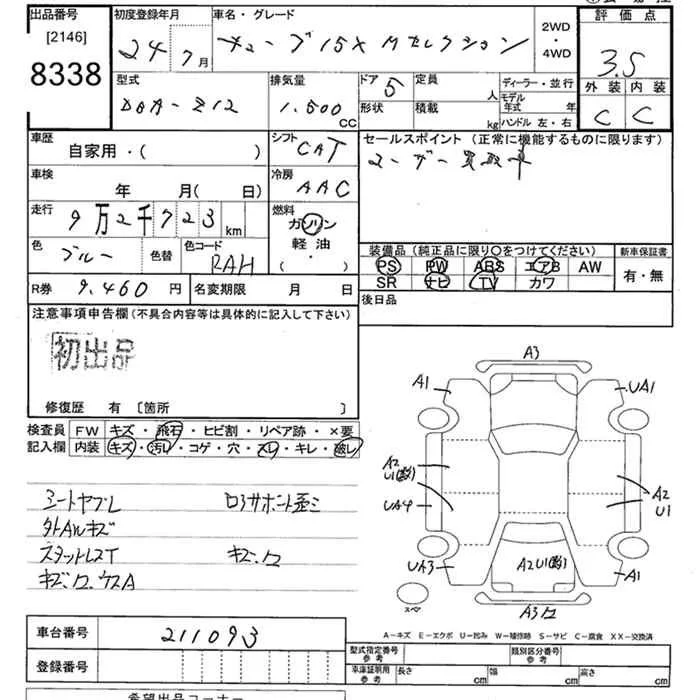 出品番号
[2146]
8338
初度登録年月
24 7月
車名・グレード
キューブ 15X Mセレクション
2WD
・
4WD
評価点
3.5
外装 内装
C C
型式
DBA-Z12
排気量
1,500 CC
ドア 5
定員 人
形状
積載 kg
ディーラー・並行
モデル年式 年
ハンドル 左・右
車歴
自家用・( )
シフト
CAT
セールスポイント (正常に機能するものに限ります)
ユーザー買取車
車検
年 月( 日)
冷房
AAC
走行
9万2千723 km
燃料
ガソリン
軽油
( ・ )
色
ブルー
色替
色コード
RAH
装備品 (純正品に限り○をつけてください)
PS PW ABS エアB AW
SR ナビ TV カワ
新車保証書
有・無
R券 9,460 円
名変期限 月 日
後日品
注意事項申告欄 (不具合内容等は具体的に記入して下さい)
初出品
修復歴 有 [箇所 ]
検査員
記入欄
FW キズ・飛石・ヒビ割・リペア跡・×要
内装 キズ・汚レ・コゲ・穴・スレ・キレ・破レ
シートヤブレ
外AWキズ
A3
A1
UA1
A2
U1(数)
UA4
A2
U1
UA3
A2U1(数)
A1
スペア
A3
A-キズ E-エクボ U-凹み W-補修跡 S-サビ C-腐食 XX-交換済
車台番号
211093
登録番号
型式指定番号
参考
類別区分番号
参考
車庫証明用
参考
長さ cm
幅 cm
高さ cm
希望出品コーナー